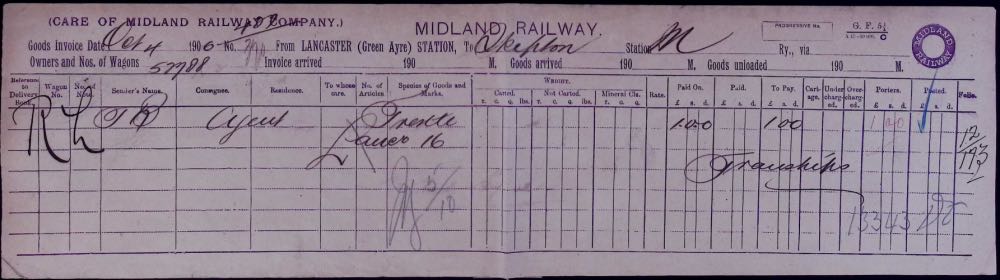 (CARE OF MIDLAND RAILWAY COMPANY.)
MIDLAND RAILWAY.
PROGRESSIVE No.
G. F. 5½
Goods Invoice Date Oct 4 1906 No. From LANCASTER (Green Ayre) STATION, To Skipton Station M Ry., via
MIDLAND RAILWAY
Owners and Nos. of Wagons 57988 Invoice arrived 190 M. Goods arrived 190 M. Goods unloaded 190 M.
Reference to Delivery Book. Wagon No. No. of Note. Sender's Name. Consignee. Residence. To whose care. No. of Articles Species of Goods and Marks. WEIGHT. Carted. Not Carted. Mineral Cls. Rate. Paid On. Paid. To Pay. Cartage. Undercharged. Overcharged. Porters. Posted. Folio.
T. C. Q. lbs. T. C. Q. lbs. T. C. Q. £ s. d. £ s. d. £ s. d. £ s. d. £ s. d.
Agent 1 0 0 1 0 0 1 0 0
16 12/193
Tranships
5/10
13343